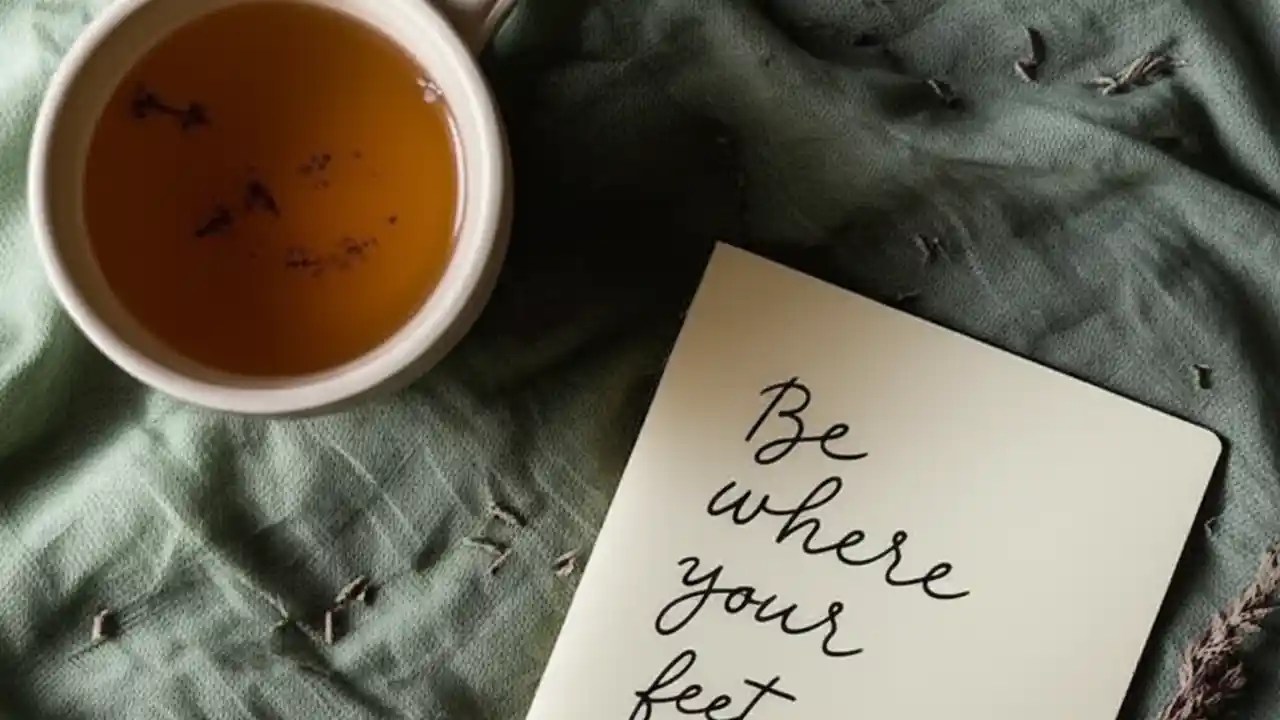 Be
where
your
feet